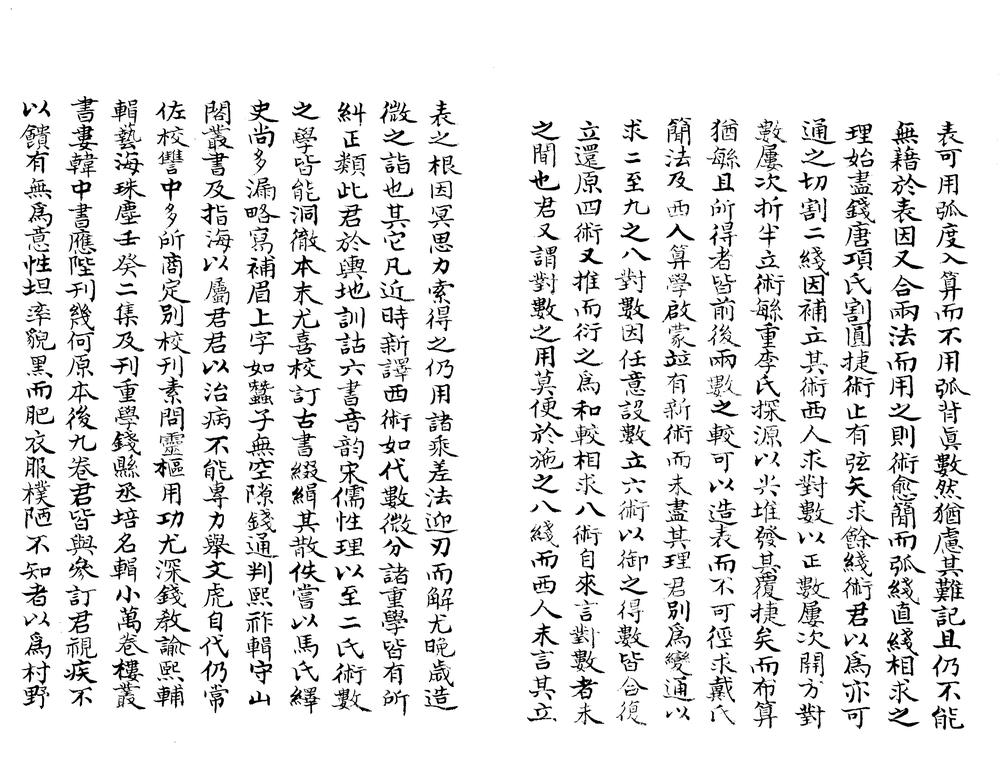 表可用弧度入算而不用弧背眞數然猶慮其難記且仍不能
無藉於表因又合兩法而用之則術愈簡而弧綫直綫相求之
理始盡錢唐項氏割圓捷術止有弦矢求餘綫術君以爲亦可
通之切割二綫因補立其術西人求對數以正數屢次開方對
數屢次折半立術繇重李氏探源以尖堆發其覆捷矣而布算
猶繇且所得者皆前後兩數之較可以造表而不可徑求戴氏
簡法及西人算學啟蒙竝有新術而未盡其理君別爲變通以
求二至九之八對數因任意設數立六術以御之得數皆合復
立還原四術又推而衍之爲和較相求八術自來言對數者未
之間也君又謂對數之用莫便於施之八綫而西人未言其立
表之根因冥思力索得之仍用諸乘差法迎刃而解尤晚歲造
微之詣也其它凡近時新譯西術如代數微分諸重學皆有所
糾正類此君於輿地訓詁六書音韵宋儒性理以至二氏術數
之學皆能洞徹本末尤喜校訂古書綴緝其散佚嘗以馬氏繹
史尚多漏略寫補眉上字如蠶子無空隙錢通判熙祚輯守山
閣叢書及指海以屬君君以治病不能專力舉文虎自代仍常
佐校讐中多所商定別校刊素問靈樞用功尤深錢敎諭熙輔
輯藝海珠塵壬癸二集及刊重學錢縣丞培名輯小萬卷樓叢
書婁韓中書應陛刊幾何原本後九卷君皆與參訂君視疾不
以饋有無爲意性坦率貌黑而肥衣服樸陋不知者以爲村野